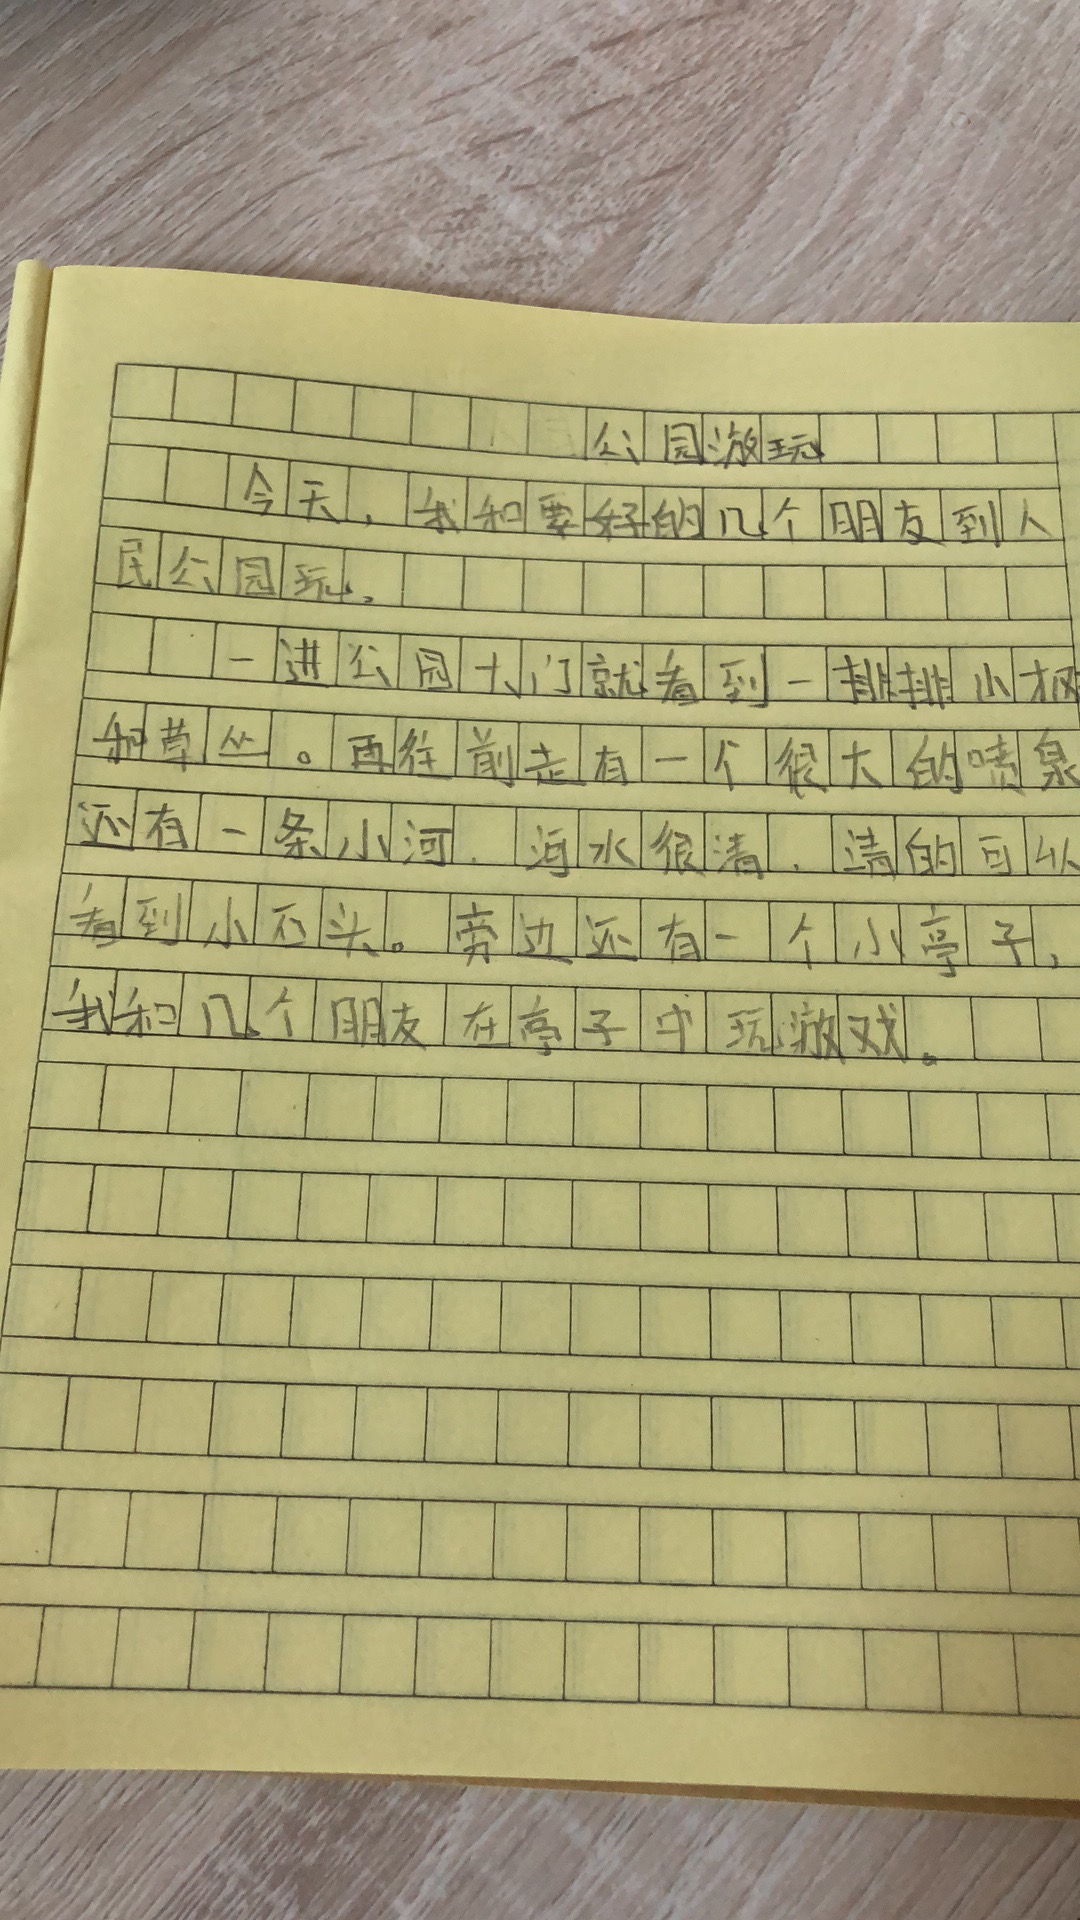 公园游玩
今天,我和要好的几个朋友到人
民公园玩。
一进公园大门就看到一排排小枫
和草丛。再往前走有一个很大的喷泉
还有一条小河.河水很清.清的可以
看到小石头。旁边还有一个小亭子,
我和几个朋友在亭子中玩游戏。